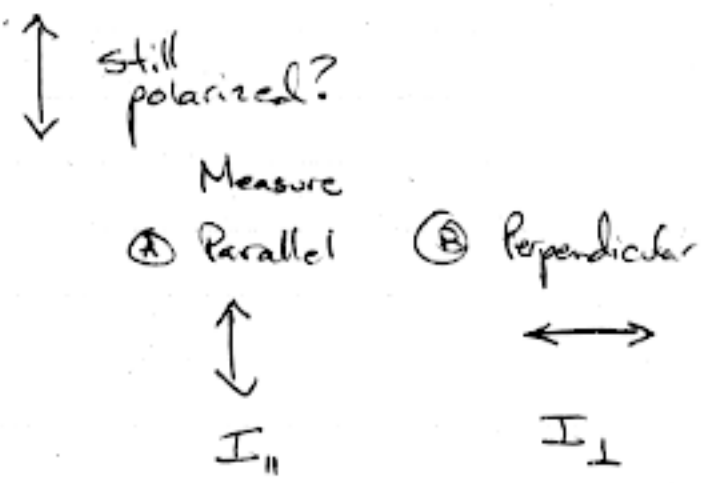 still
polarized?
Measure
Ⓐ Parallel Ⓑ Perpendicular
I∥ I⊥